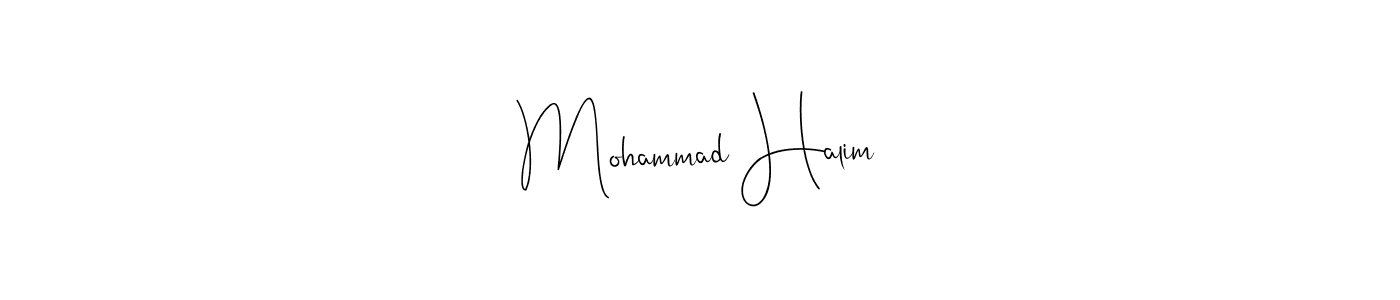 Mohammad Halim